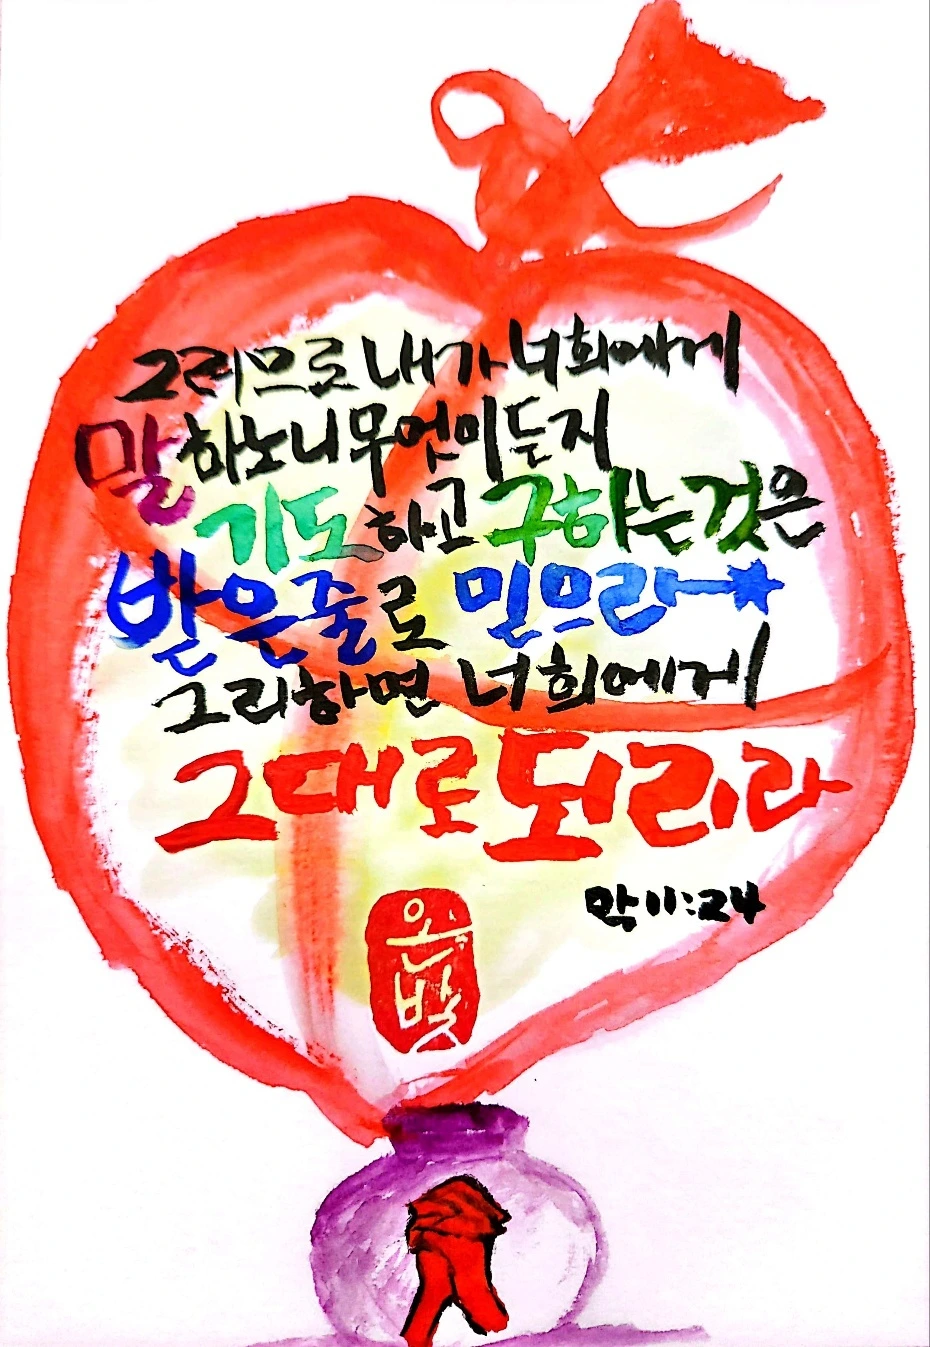 그러므로 내가 너희에게
말하노니 무엇이든지
기도하고 구하는 것은
받은 줄로 믿으라
그리하면 너희에게
그대로 되리라
막 11:24
온
빛